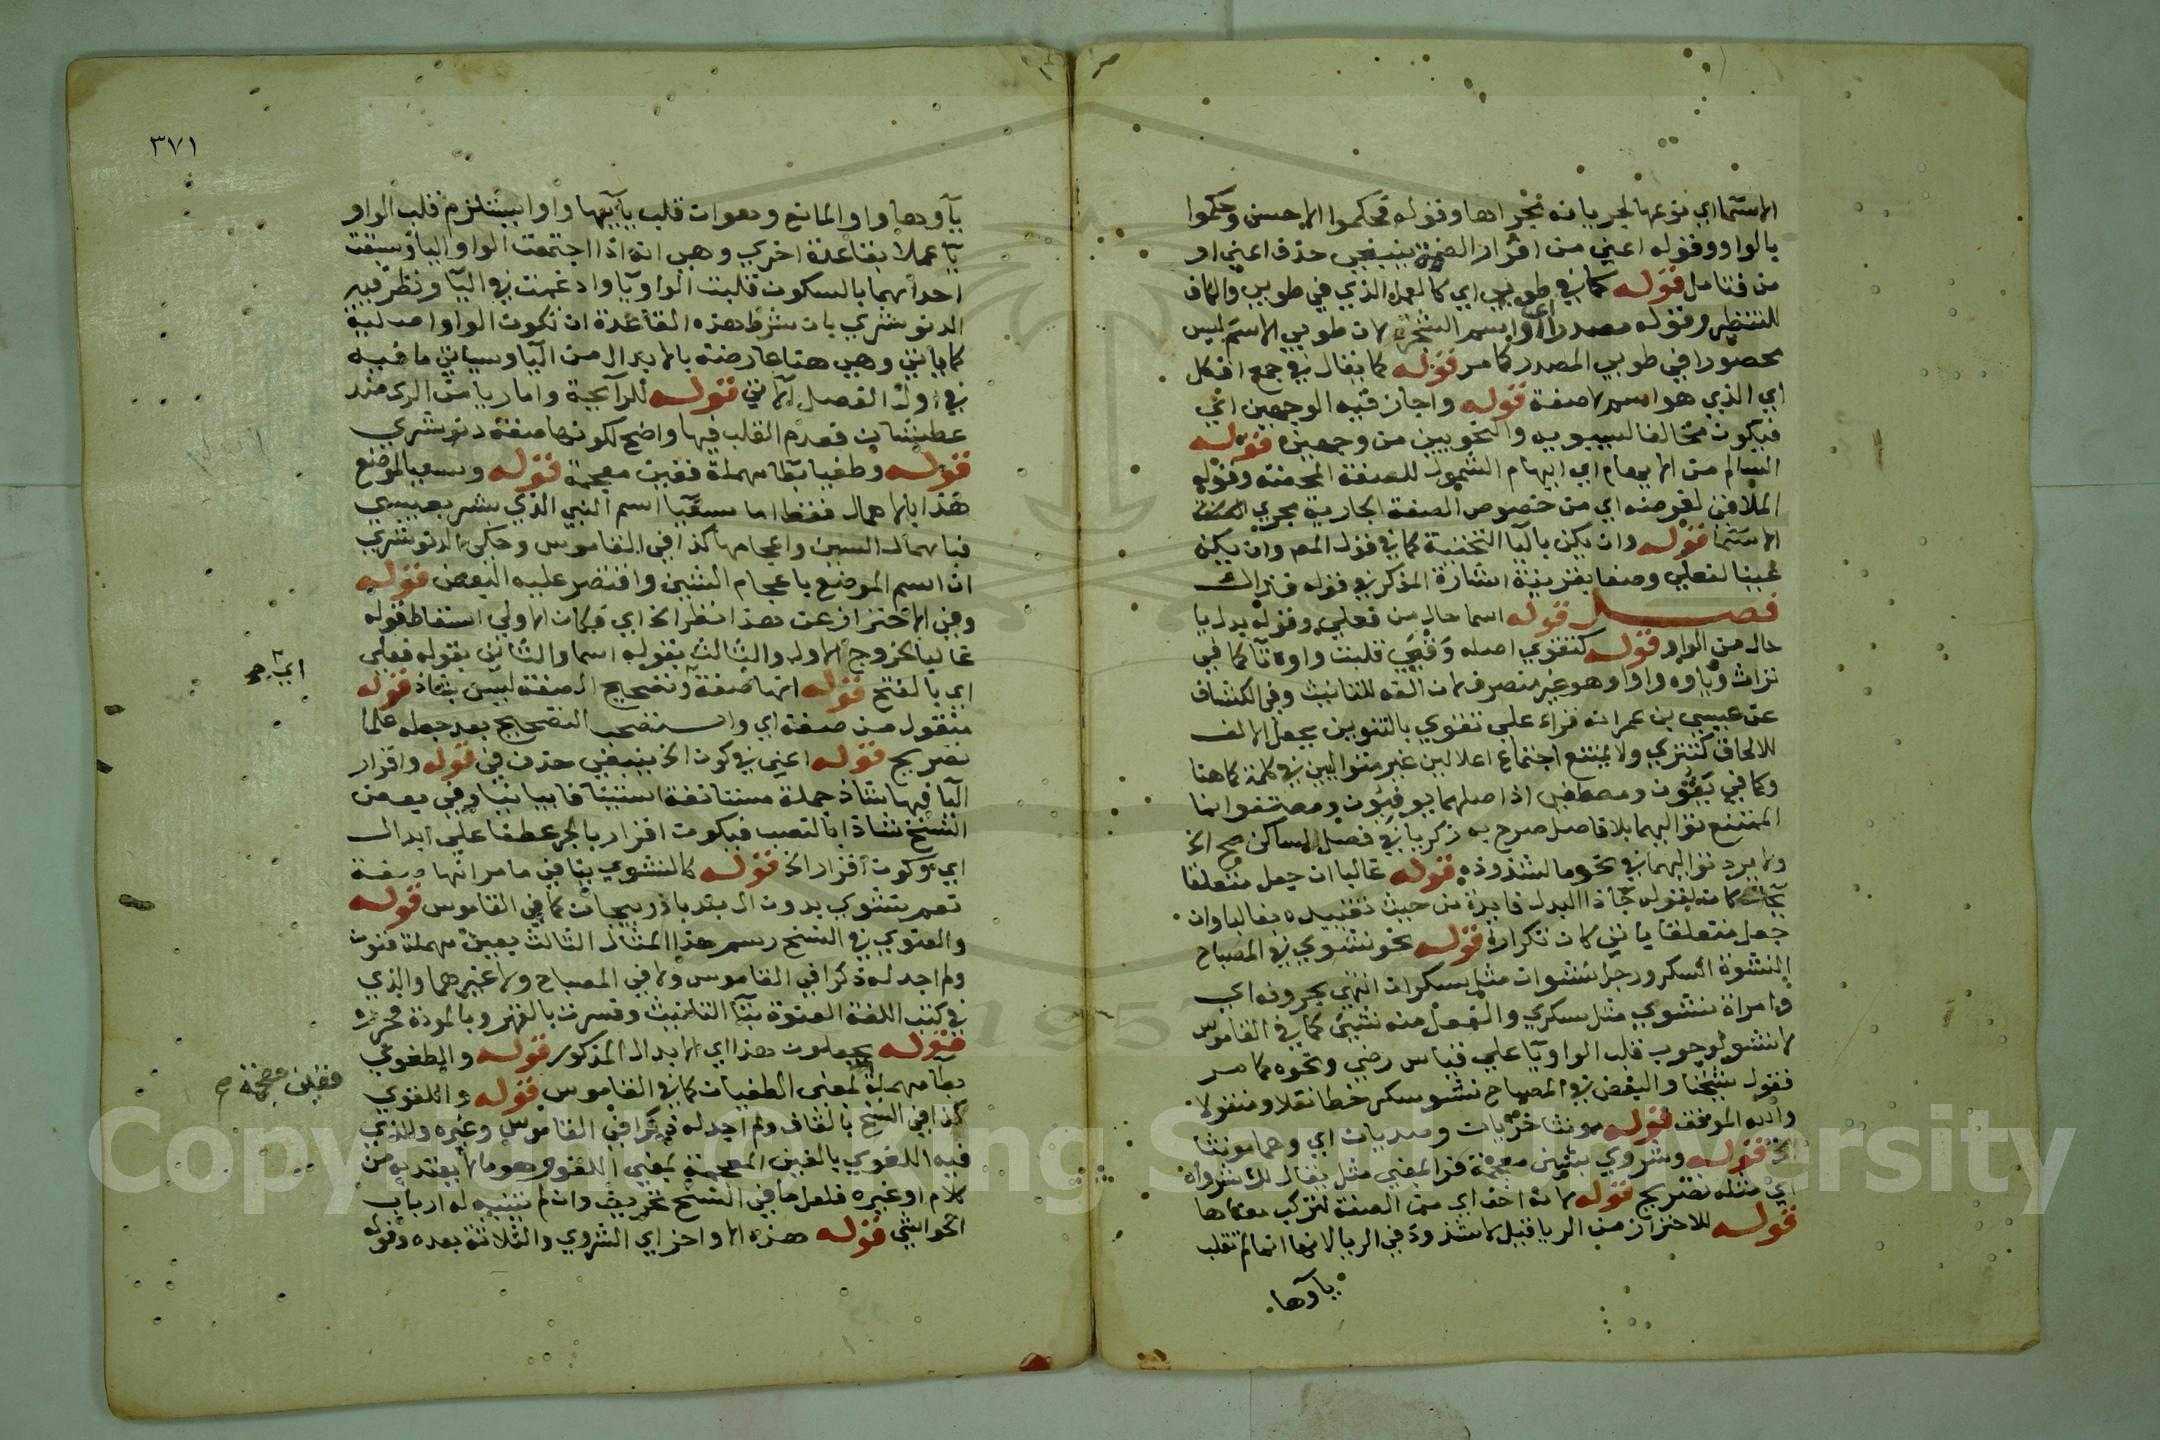 الاسما اي نوعها لجريانه مجراها وقوله فحكموا الاحسن وحكموا
بالواو وقوله اعني من اقرار الضمة ينبغي حذف اعني او
من فتامل قوله كما في طوبى اي كالعمل الذي في طوبى والكاف
للتنظير وقوله مصدرا او اسم الشجرة لان طوبى الاسم ليس
محصورا في طوبى المصدر كما مر قوله كما يقال في جمع افكل
اي الذي هو اسم لا صفة قوله واجاز فيه الوجهين اي
فيكون مخالفا لسيبويه والنحويين من وجهين قوله
السالم من الايهام اي ايهام الشمول للصفة المحضة وقوله
الملاقي لغرضه اي من خصوص الصفة الجارية مجرى
الاسما قوله وان يكن باليا التحتية كما في قول المص وان يكن
عينا لفعلى وصفا بقرينة اشارة المذكر في قوله فذاك
فصل قوله اسما حال من فعلى وقوله بدل يا
حال من الواو قوله كتقوى اصله وقيى قلبت واوه تا كما في
تراث وياوه واوا وهو غير منصرف لان الفه للتانيث وفي الكشاف
عن عيسى بن عمر انه قراء على تقوى بالتنوين بجعل الالف
للالحاق كتترى ولا يمتنع اجتماع اعلالين غير متواليين في كلمة كما هنا
وكما في يقون ومصطفى اذ اصلهما يوقيون ومصتفوا انما
الممتنع تواليهما بلا فاصل صرح به زكريا في فصل لساكن صح الخ
ولا يرد تواليهما في نحو ما لشذوذه قوله غالبا ان جعل متعلقا
بجا كان لقوله جا ذا البدل فايدة من حيث تقييده بغالبا وان
جعل متعلقا ياتي كان تكرارا قوله نحو نشوى في المصباح
النشوة السكر ورجل نشوان مثل سكران انتهى بحروفه اي
وامراة نشوى مثل سكرى والفعل منه نشي كما في القاموس
لا نشو لوجوب قلب الواو يا على قياس رضي ونحوه مما مر
فقول شيخنا والبعض في المصباح نشو سكر خطا نقلا ومنقولا
والله الموفق قوله مونثا خزيان وصديان اي وهما مونثا
الخ قوله وشروى بشين معجمة فرا المعنى مثل يقال لك شرواه
اي مثله تصريح قوله لانه اخف اي من الصفة لتركب معناها
قوله للاحتراز من الريا قيل لا شذوذ في الريا لانها انما لم تقلب
ياوها
٣٧١
ياوها واوا لمانع وهو ان قلب يائها واوا يستلزم قلب الواو
يا عملا بقاعدة اخرى وهي انه اذا اجتمعت الواو واليا وسبقت
احداهما بالسكون قلبت الواو يا وادغمت في اليا ونظر فيه
الدنوشري بان شرط هذه القاعدة ان تكون الواو اصلية
كما ياتي وهي هنا عارضة بالابدال من اليا وسياتي ما فيه
في اول الفصل الاتي قوله للرائحة واما ريا من الري ضد
عطشان فعدم القلب فيها واضح لكونها صفة دنوشري
قوله وطغيا بطا مهملة فغين معجمة قوله وسعيا لموضع
هذا بالاهمال فقط اما سعيا اسم النبي الذي بشر بعيسى
فباهمال السين واعجامها كذا في القاموس وحكى الدنوشري
ان اسم الموضع باعجام الشين واقتصر عليه البعض قوله
وفي الاحتراز عن هذا نظر الخ اي فكان الاولى اسقاط قوله
غالبا لخروج الاول والثالث بقوله اسما والثاني بقوله فعلى
اي بالفتح قوله انها صفة وتصحيح الصفة ليس بشاذ قوله
اي جر
منقول من صفة اي واستصحب التصحيح بعد جعله علما
تصريح قوله اعني في كون الخ ينبغي حذف في قوله واقرار
اليا فيها شاذ جملة مستانفة استينافا بيانيا وفي بعض
النسخ شاذا بالنصب فيكون اقرار بالجر عطفا على ابدال
اي وكون اقرار الخ قوله كالنشوى ينافي ما مر انها صفة
نعم نشوى بدون ال بلد باذربيجان كما في القاموس قوله
والعنوى في النسخ رسم هذا المثال الثالث بعين مهملة فنون
ولم اجد له ذكرا في القاموس ولا في المصباح ولا غيرهما والذي
في كتب اللغة العنوة بتا التانيث وفسرت بالقهر وبالمودة فحرره
قوله يجعلون هذا اي الابدال المذكور قوله والطغوى
بطا مهملة لمعنى الطغيان كما في القاموس قوله واللقوى
فغين معجمة صح
كذا في النسخ بالقاف ولم اجد له ذكرا في القاموس وغيره والذي
فيه اللغوى بالغين المعجمة بمعنى اللغو وهو ما لا يعتد به من
كلام او غيره فلعل ما في النسخ تحريف وان لم يتنبه له ارباب
الحواشي قوله هذه الاواخر اي الشروى والثلاثة بعده وقوله
Copyright © King Saud University
1957